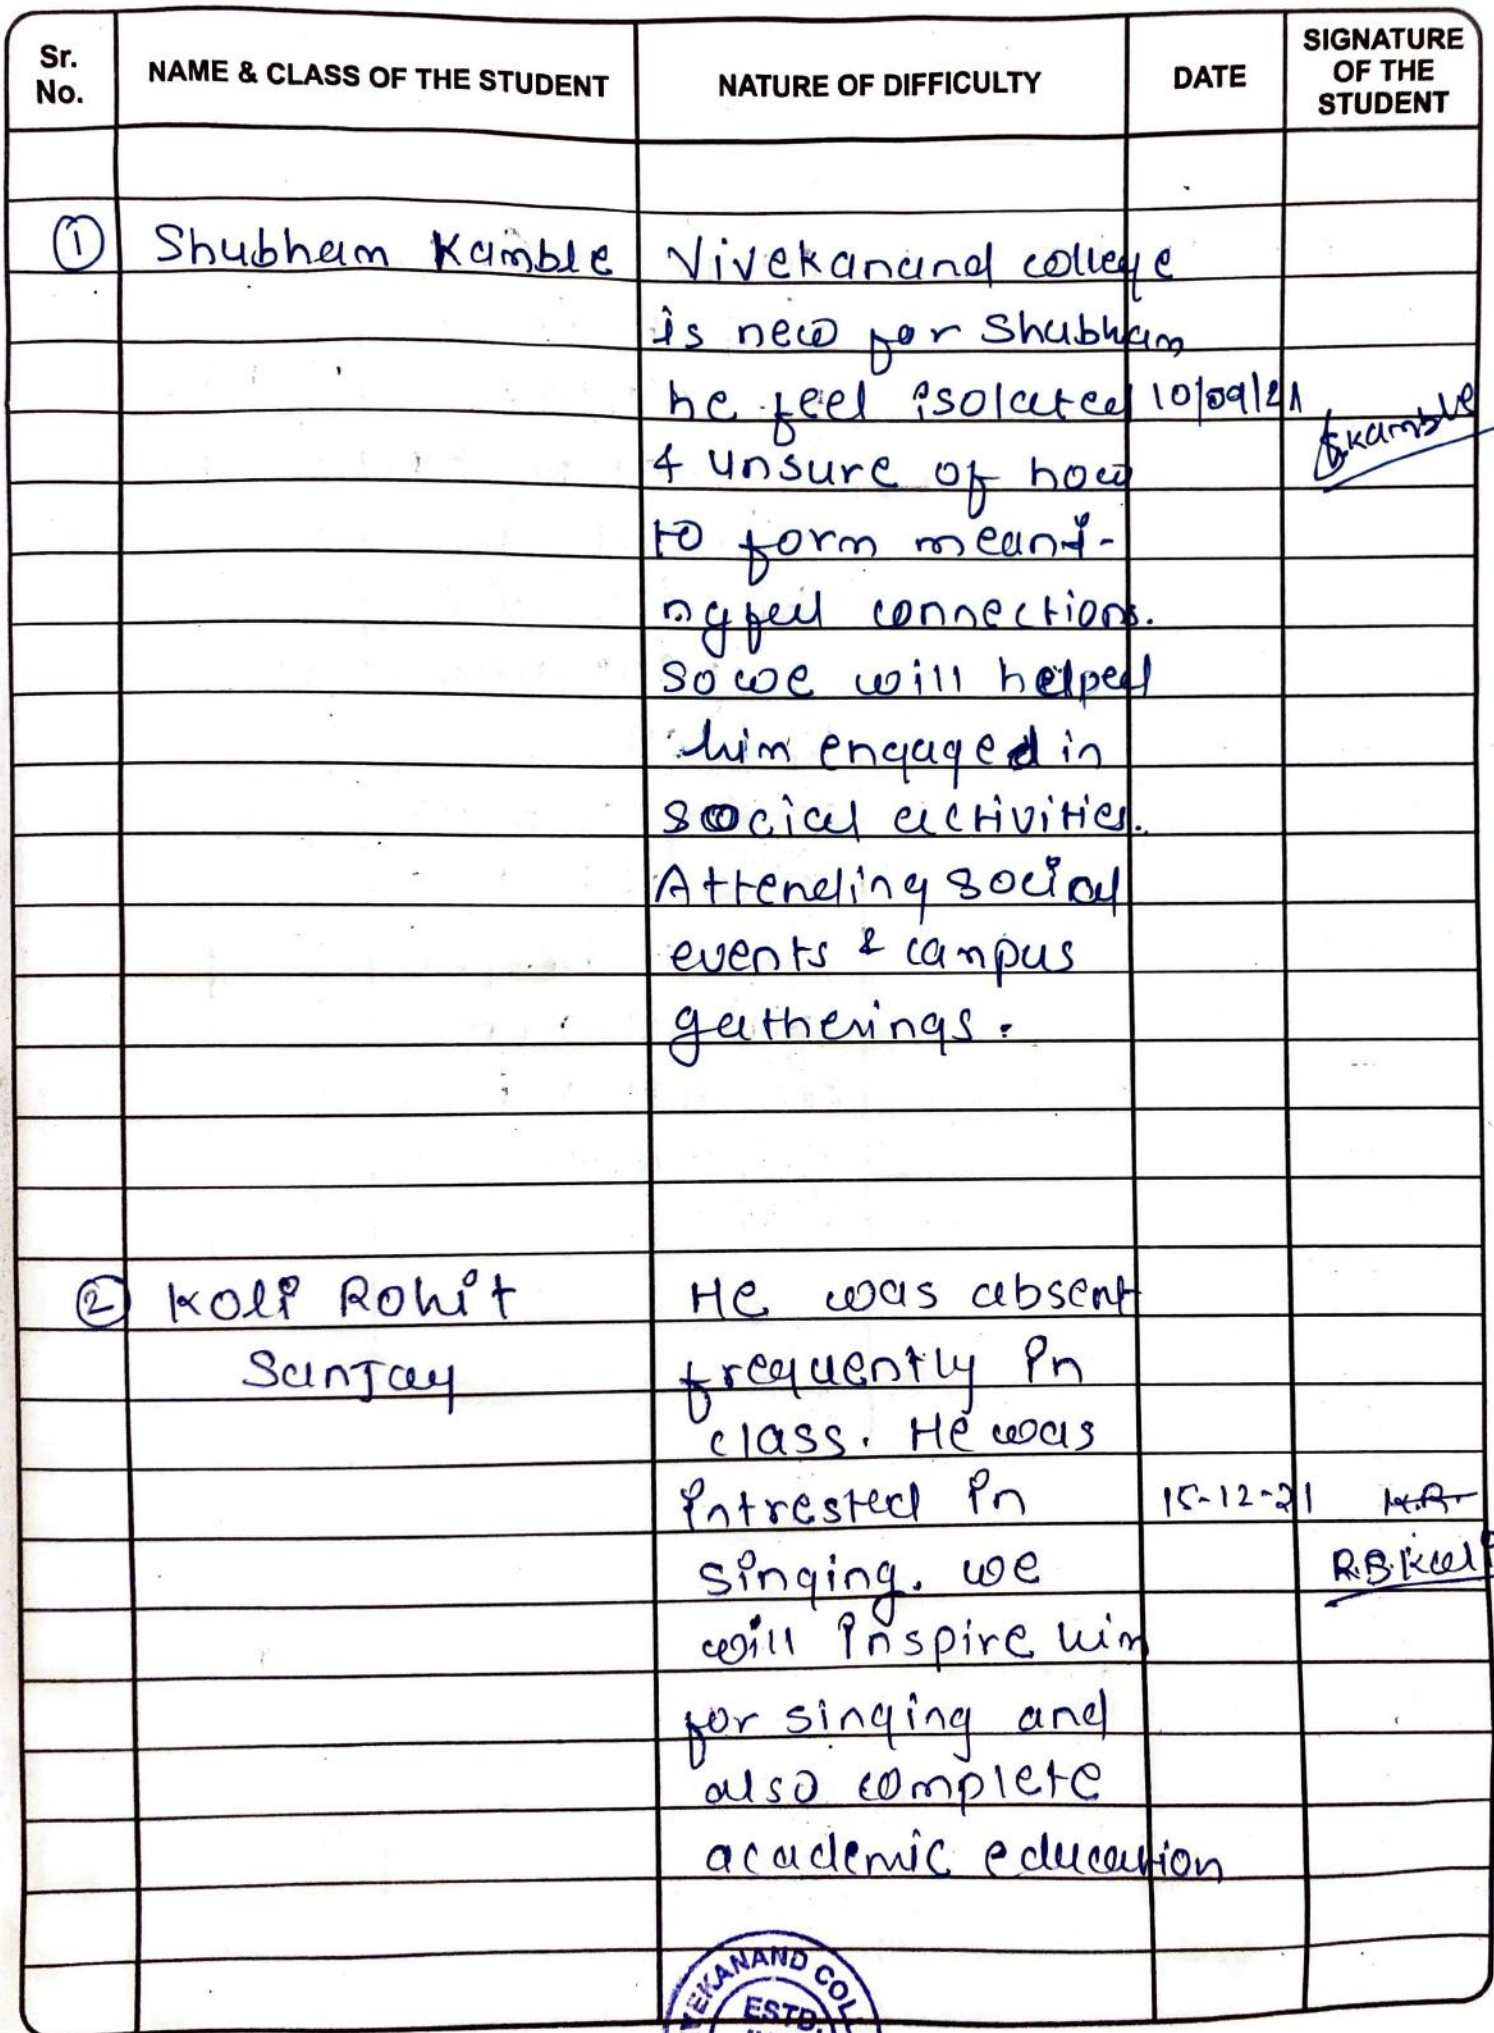 Sr. No.
NAME & CLASS OF THE STUDENT
NATURE OF DIFFICULTY
DATE
SIGNATURE OF THE STUDENT
① Shubham Kamble Vivekanand college
is new for Shubham
he feel isolated 10/09/21
Skamble
& unsure of how
to form meani-
ngful connections.
So we will helped
him engaged in
social activities.
Attending social
events & campus
gatherings.
② Koli Rohit He was absent
Sanjay frequently in
class. He was
intrested in 15-12-21 K.R.
singing. we R.B.Koli
will inspire him
for singing and
also complete
academic education
VEKANAND COL
ESTD.